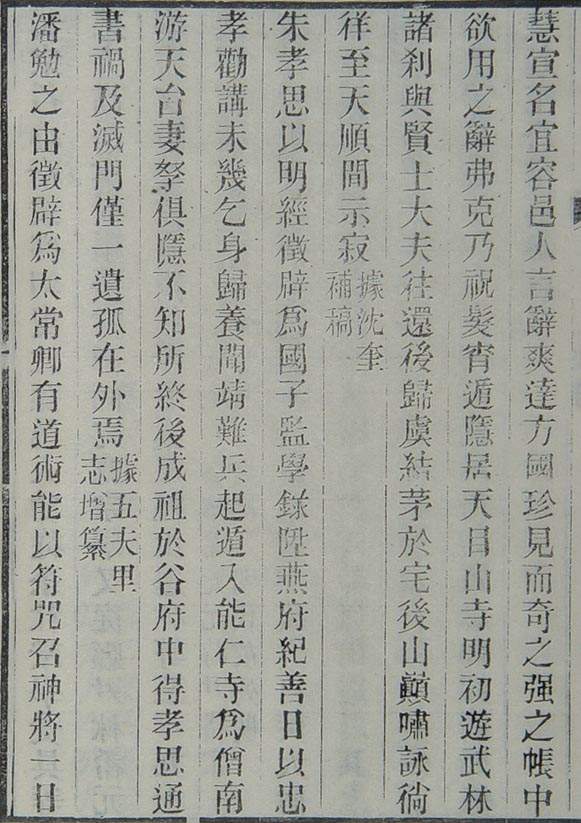 慧宣名宜容邑人言辭爽達方國珍見而奇之强之帳中
欲用之辭弗克乃祝髮宵遁隱居天目山寺明初遊武林
諸刹與賢士大夫往還後歸虞結茅於宅後山巔嘯詠徜
徉至天順間示寂據沈奎補稿
朱孝思以明經徵辟爲國子監學錄陞燕府紀善日以忠
孝勸講未幾乞身歸養聞靖難兵起遁入能仁寺爲僧南
游天台妻孥俱隱不知所終後成祖於谷府中得孝思通
書禍及滅門僅一遺孤在外焉據五夫里志增纂
潘勉之由徵辟爲太常卿有道術能以符咒召神將一日